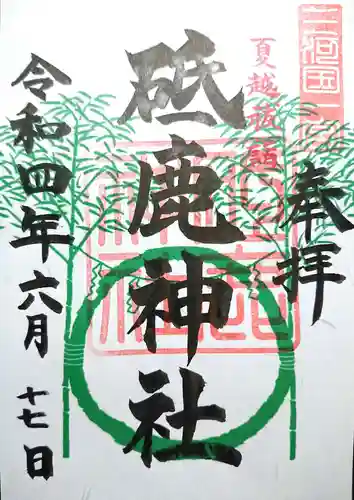 三河國一宮
奉拝
夏越祓詣
砥鹿神社
令和四年六月十七日